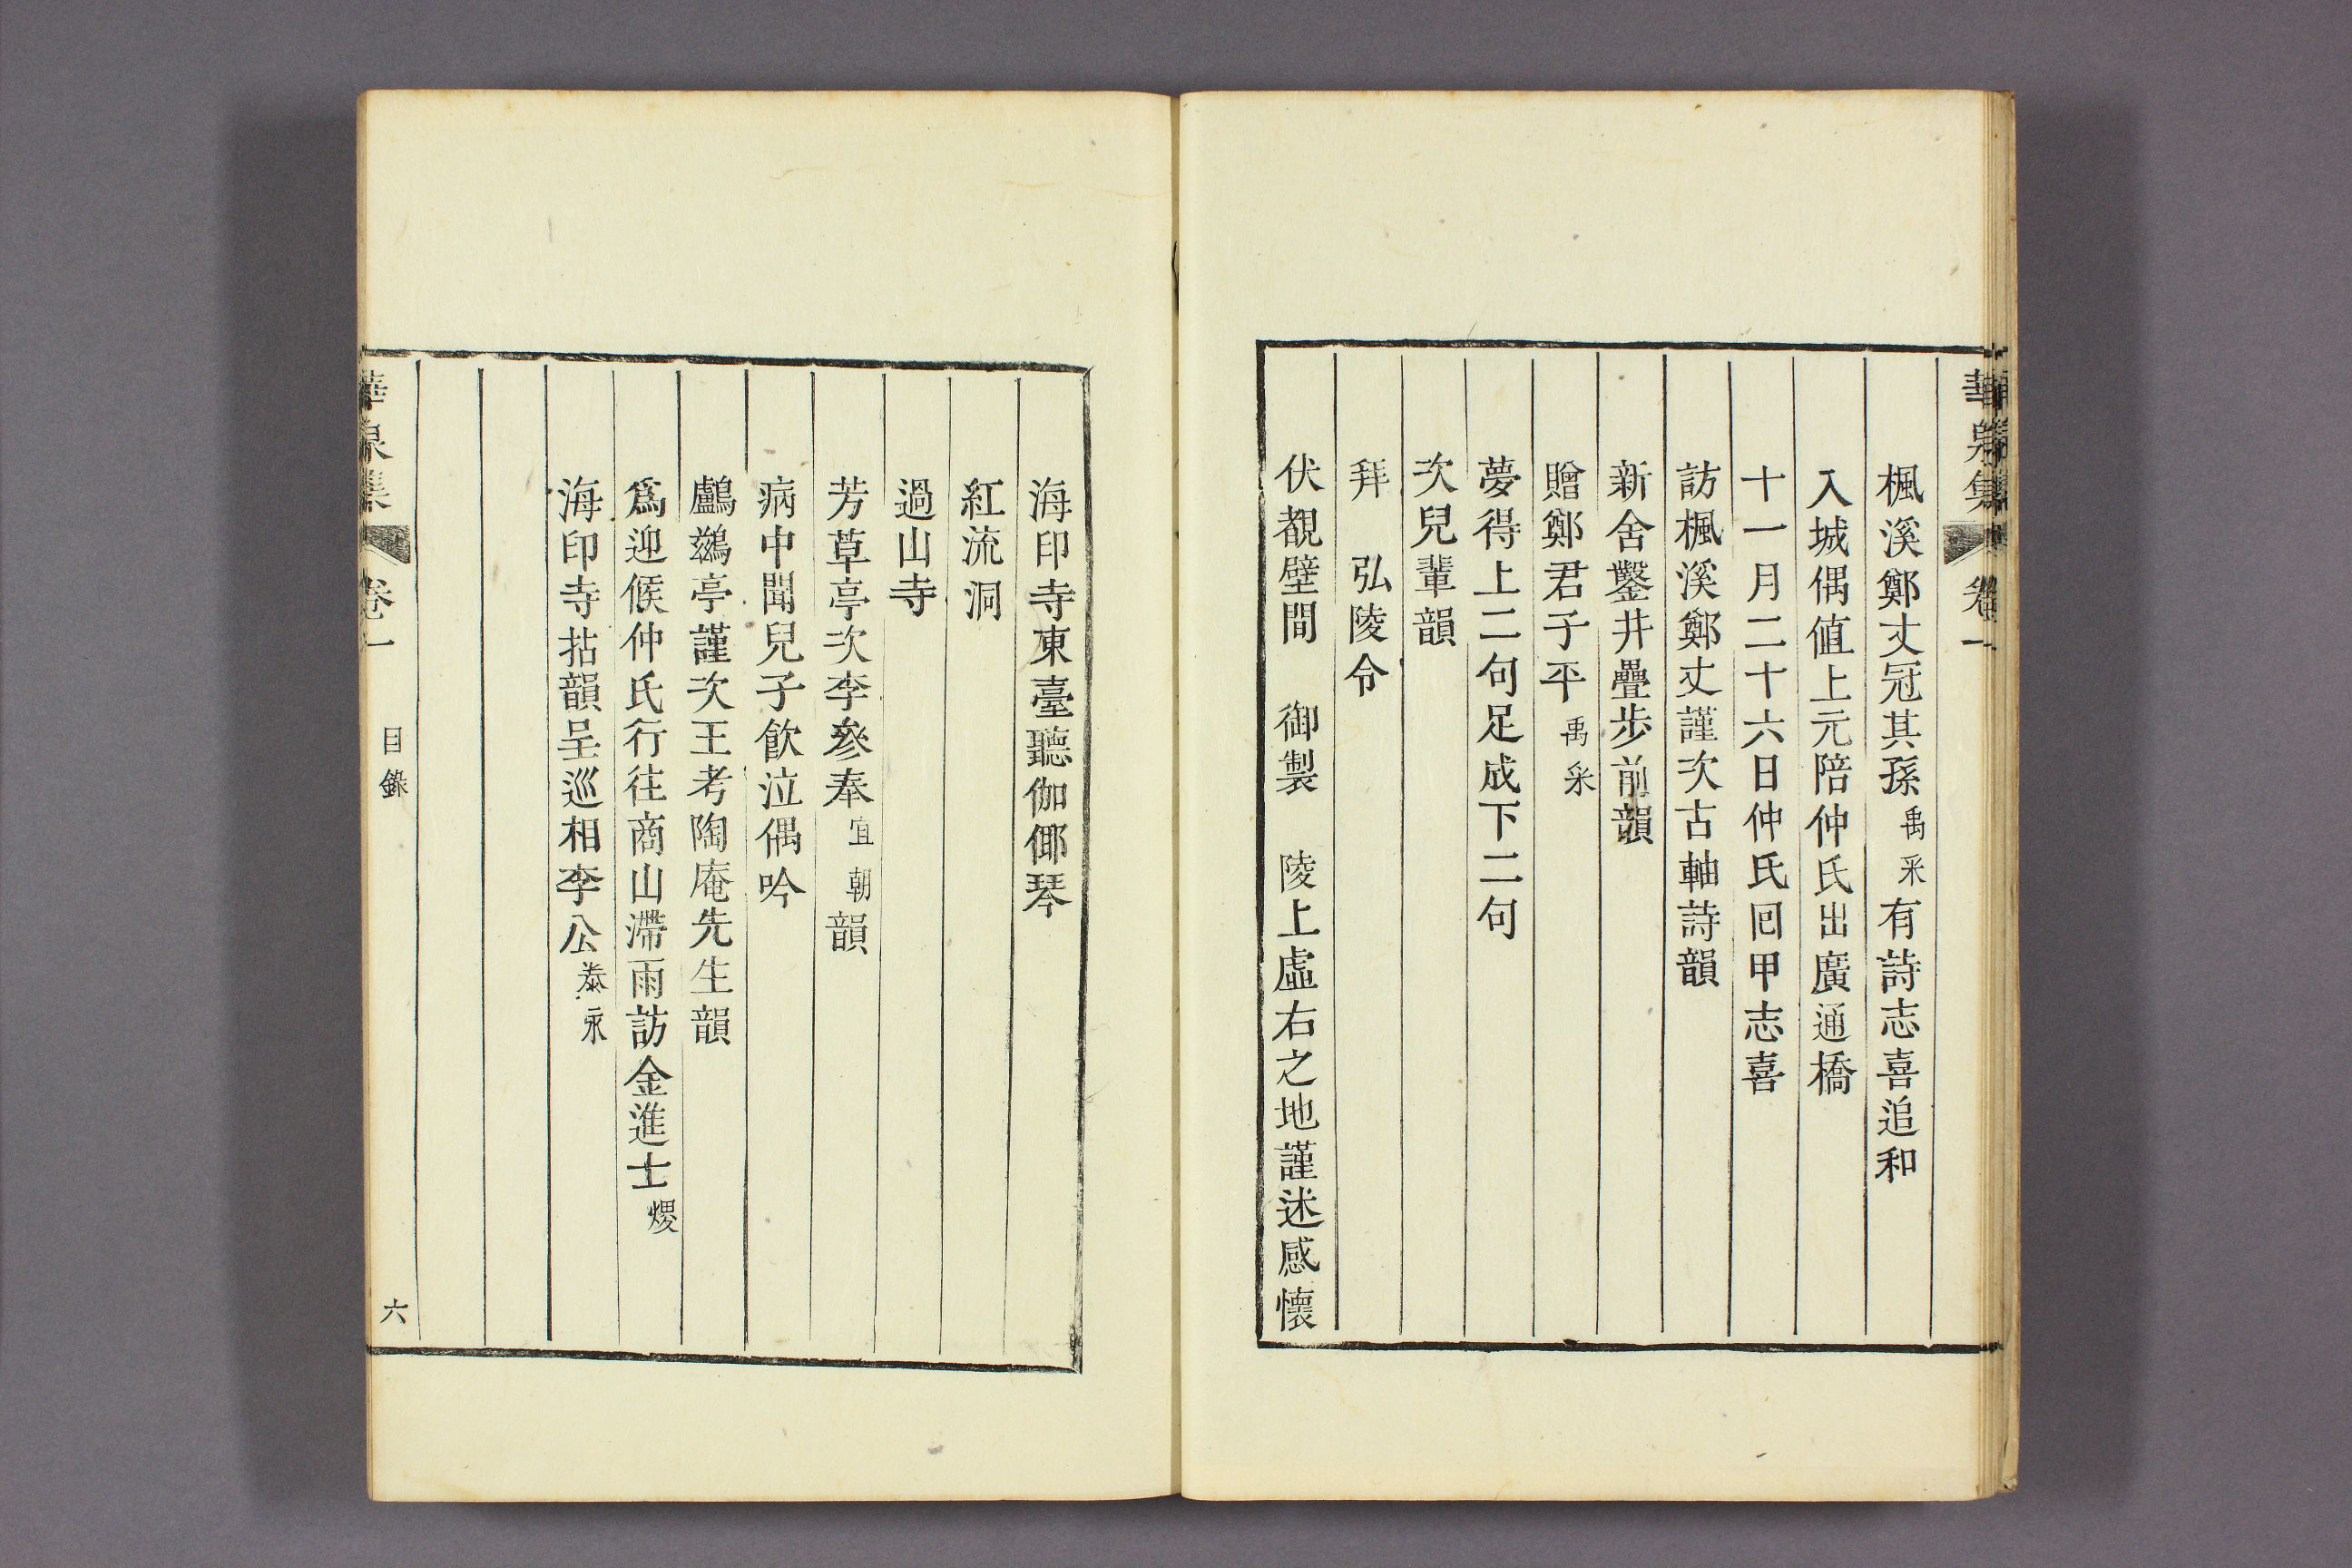 華泉集 卷一
楓溪鄭丈冠其孫禹采有詩志喜追和
入城偶值上元陪仲氏出廣通橋
十一月二十六日仲氏回甲志喜
訪楓溪鄭丈謹次古軸詩韻
新舍鑿井疊步前韻
贈鄭君子平禹采
夢得上二句足成下二句
次兒輩韻
拜 弘陵令
伏覩壁間 御製 陵上虛右之地謹述感懷
海印寺東臺聽伽倻琴
紅流洞
過山寺
芳草亭次李參奉宜朝韻
病中聞兒子飮泣偶吟
鸕鷀亭謹次王考陶庵先生韻
爲迎候仲氏行往商山滯雨訪金進士熤
海印寺拈韻呈巡相李公泰永
華泉集 卷一 目錄 六